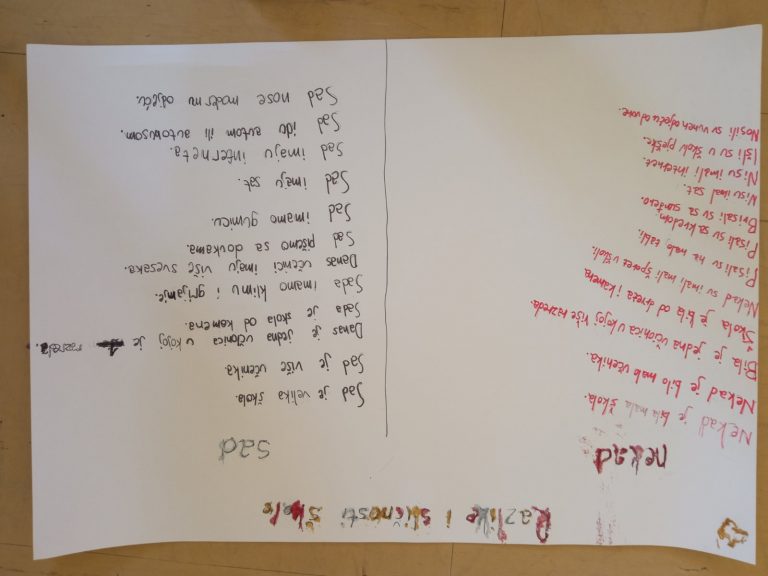 Razlike i sličnosti škole
nekad
Nekad je bila mala škola.
Nekad je bilo malo učenika.
Bila je jedna učionica u kojoj više razreda.
Škola je bila od drveta i kamena.
Nekad su imali šporet u školi.
Pisali su na malo tabli.
Pisali su sa kredom.
Brisali su sa sunđero.
Nisu imal sat.
Nisu imali internet.
Išli su u školu pješke.
Nosili su vunen odjeću
sad
Sad je velika škola.
Sad je više učenika.
Danas je jedna učionica u kojoj je 1
Sada je škola od kamena.
Sada imamo klimu i grijanje.
Danas učenici imaju više svesaka.
Sad pišemo sa olovkama.
Sad imamo gumicu.
Sad imaju sat.
Sad imaju interneta.
Sad idu autom ili autobusom.
Sad nose modernu odjeću.